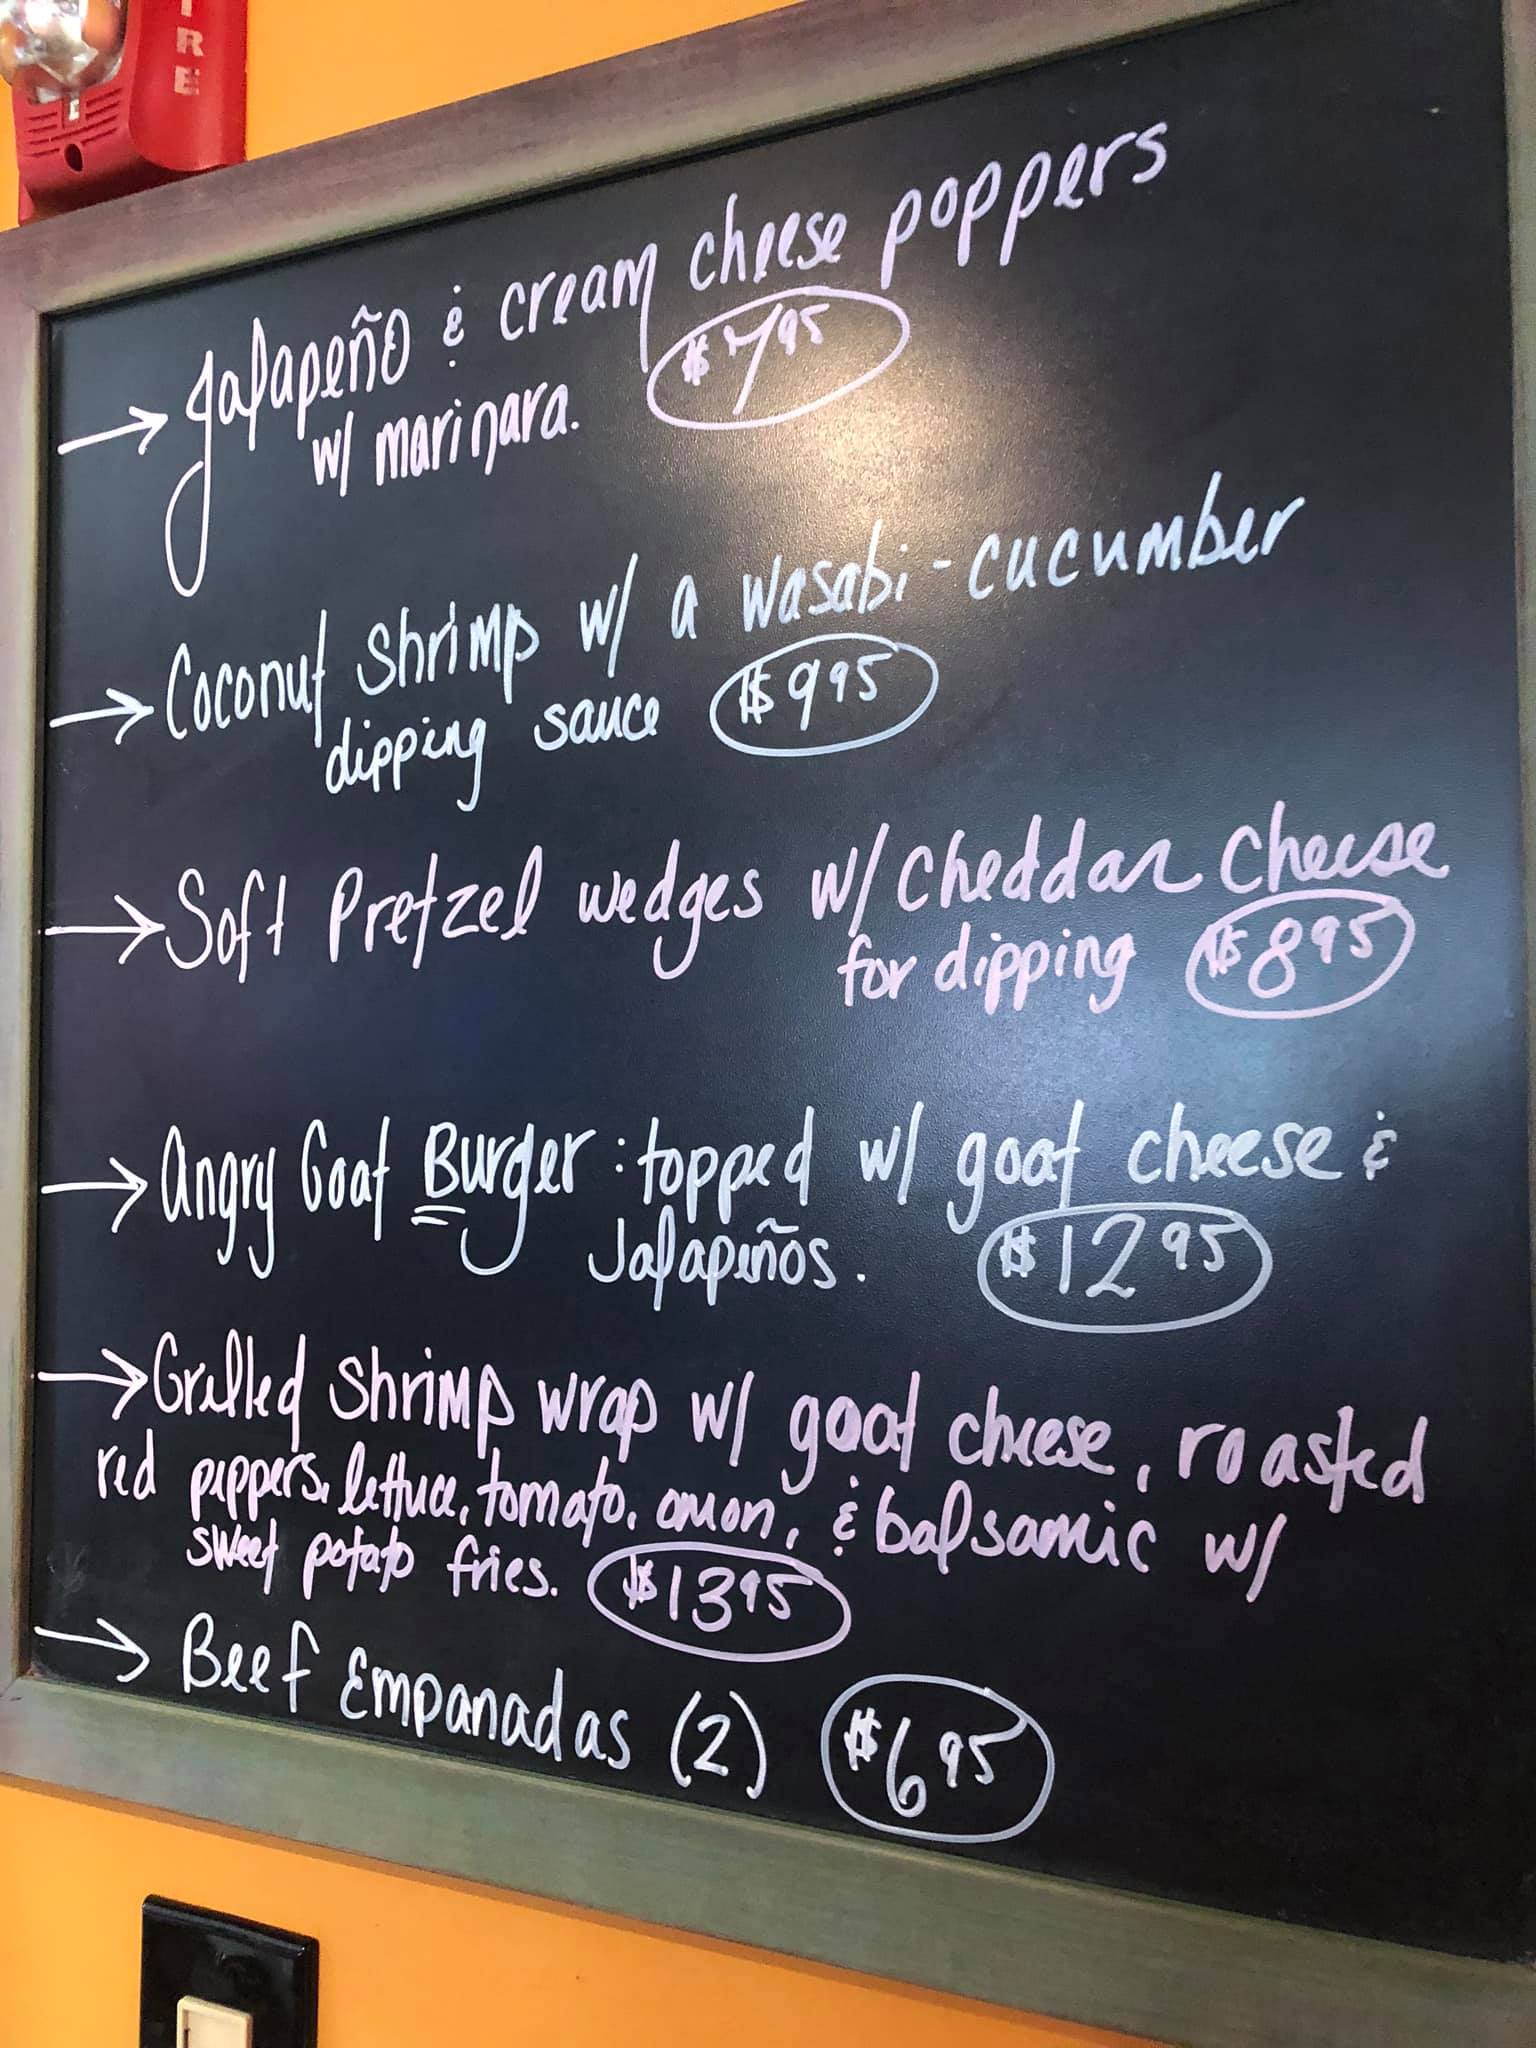 IRE
Jalapeño & cream cheese poppers
w/ marinara. $7.95
→ Coconut shrimp w/ a wasabi-cucumber
dipping sauce $9.95
→ Soft Pretzel wedges w/ cheddar cheese
for dipping $8.95
→ Angry Goat Burger: topped w/ goat cheese &
Jalapeños. $12.95
→ Grilled shrimp wrap w/ goat cheese, roasted
red peppers, lettuce, tomato, onion, & balsamic w/
sweet potato fries. $13.95
→ Beef Empanadas (2) $6.95